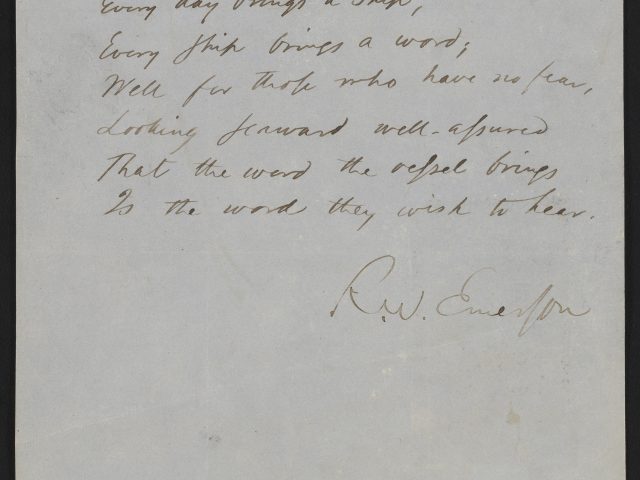 Every day brings a ship,
Every ship brings a word;
Well for those who have no fear,
Looking seaward well-assured
That the word the vessel brings
Is the word they wish to hear.
R. W. Emerson